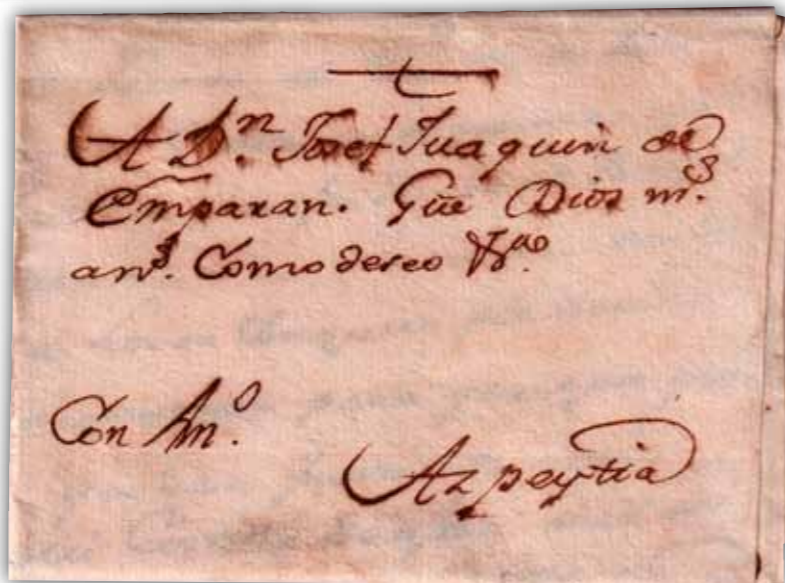 A Dn. Josef Juaquin de
Emparan. Gũe Dios ms.
ans. Como deseo &a.
Con Amo.
Azpeytia